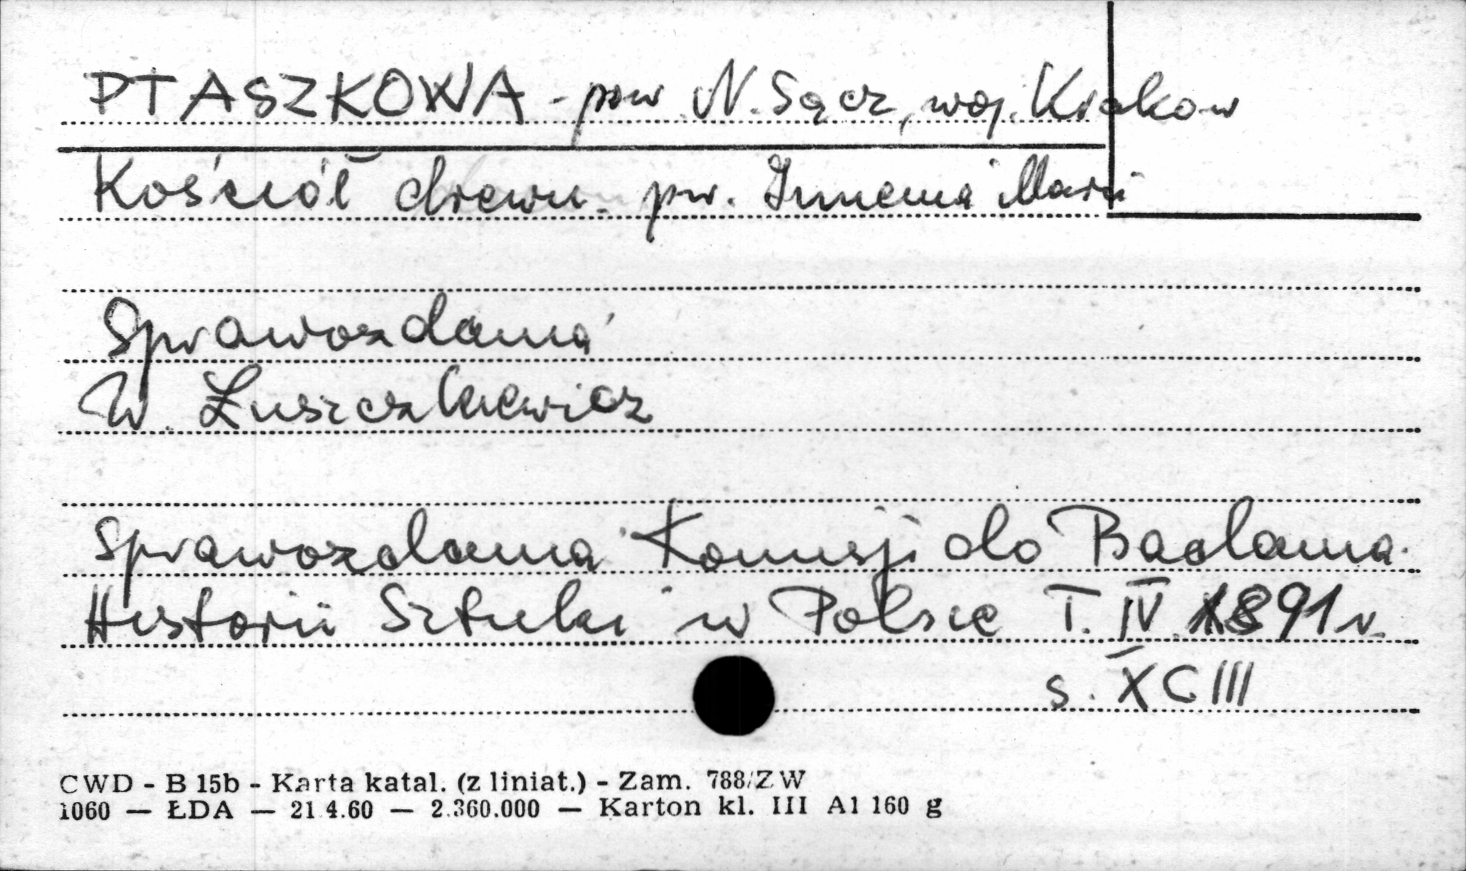 PTASZKOWA - pow N. Sącz, woj. Krakow
Kościół drewn. pw. Imienia Marii
Sprawozdania
W. Łuszczkiewicz
Sprawozdania Komisji do Badania
Historii Sztuki w Polsce T. IV 1891 r.
s. XCIII
CWD - B 15b - Karta katal. (z liniat.) - Zam. 788/ZW
1060 — ŁDA — 21.4.60 — 2.360.000 — Karton kl. III A1 160 g